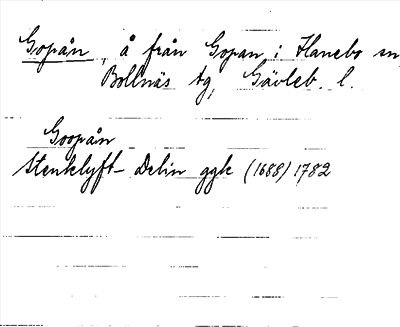 Gopån, å från Gopan i Hanebo sn,
Bollnäs tg, Gävleb. l.
Goopån
Stenklyft- Delin ggk (1688) 1782